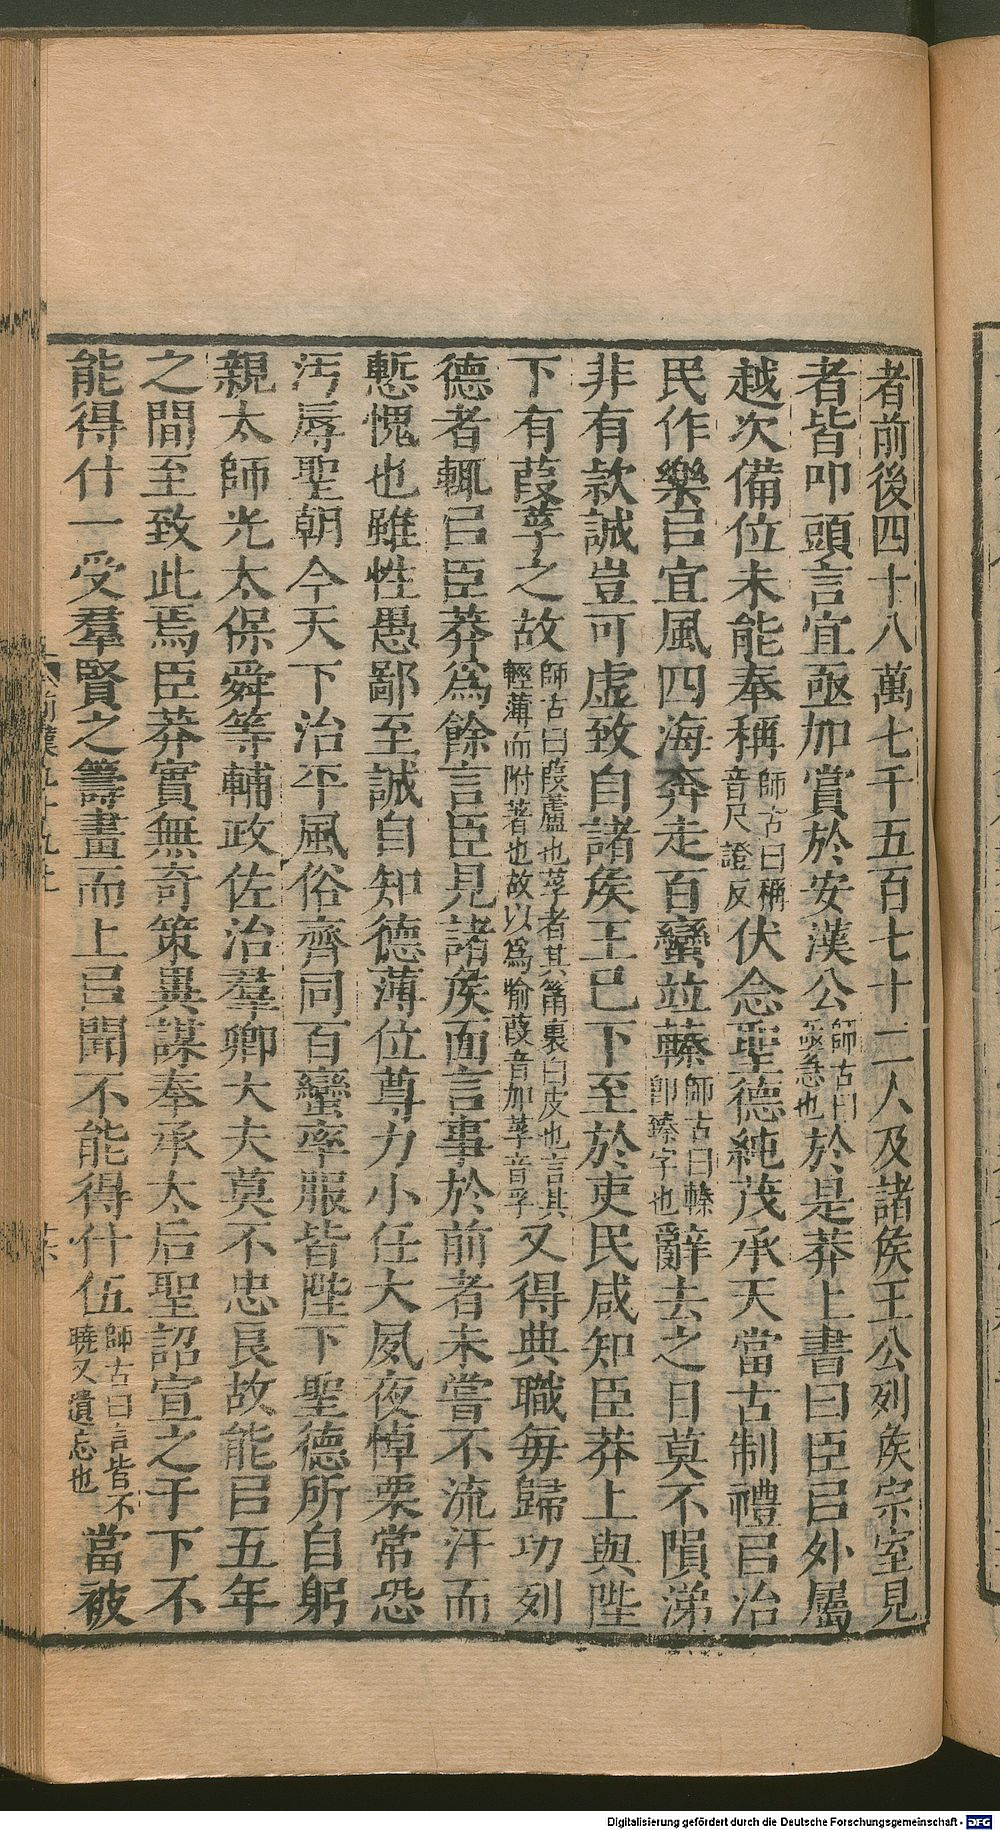 者前後四十八萬七千五百七十二人及諸侯王公列侯宗室見
者皆叩頭言宜亟加賞於安漢公師古曰亟急也於是莽上書曰臣㠯外屬
越次備位未能奉稱師古曰稱音尺證反伏念聖德純茂承天當古制禮㠯治
民作樂㠯宜風四海奔走百蠻竝轃師古曰轃卽臻字也辭去之日莫不隕涕
非有款誠豈可虛致自諸侯王已下至於吏民咸知臣莽上與陛
下有葭莩之故師古曰葭蘆也莩者其筩裏白皮也言其輕薄而附著也故以爲喻葭音加莩音孚又得典職每歸功列
德者輒㠯臣莽爲餘言臣見諸侯面言事於前者未嘗不流汗而
慙愧也雖性愚鄙至誠自知德薄位尊力小任大夙夜悼栗常恐
汚辱聖朝今天下治平風俗齊同百蠻率服皆陛下聖德所自躬
親太師光太保舜等輔政佐治羣卿大夫莫不忠良故能㠯五年
之間至致此焉臣莽實無奇策異謀奉承太后聖詔宣之于下不
能得什一受羣賢之籌畫而上㠯聞不能得什伍師古曰言皆不曉又遺忘也當被
Digitalisierung gefördert durch die Deutsche Forschungsgemeinschaft - DFG